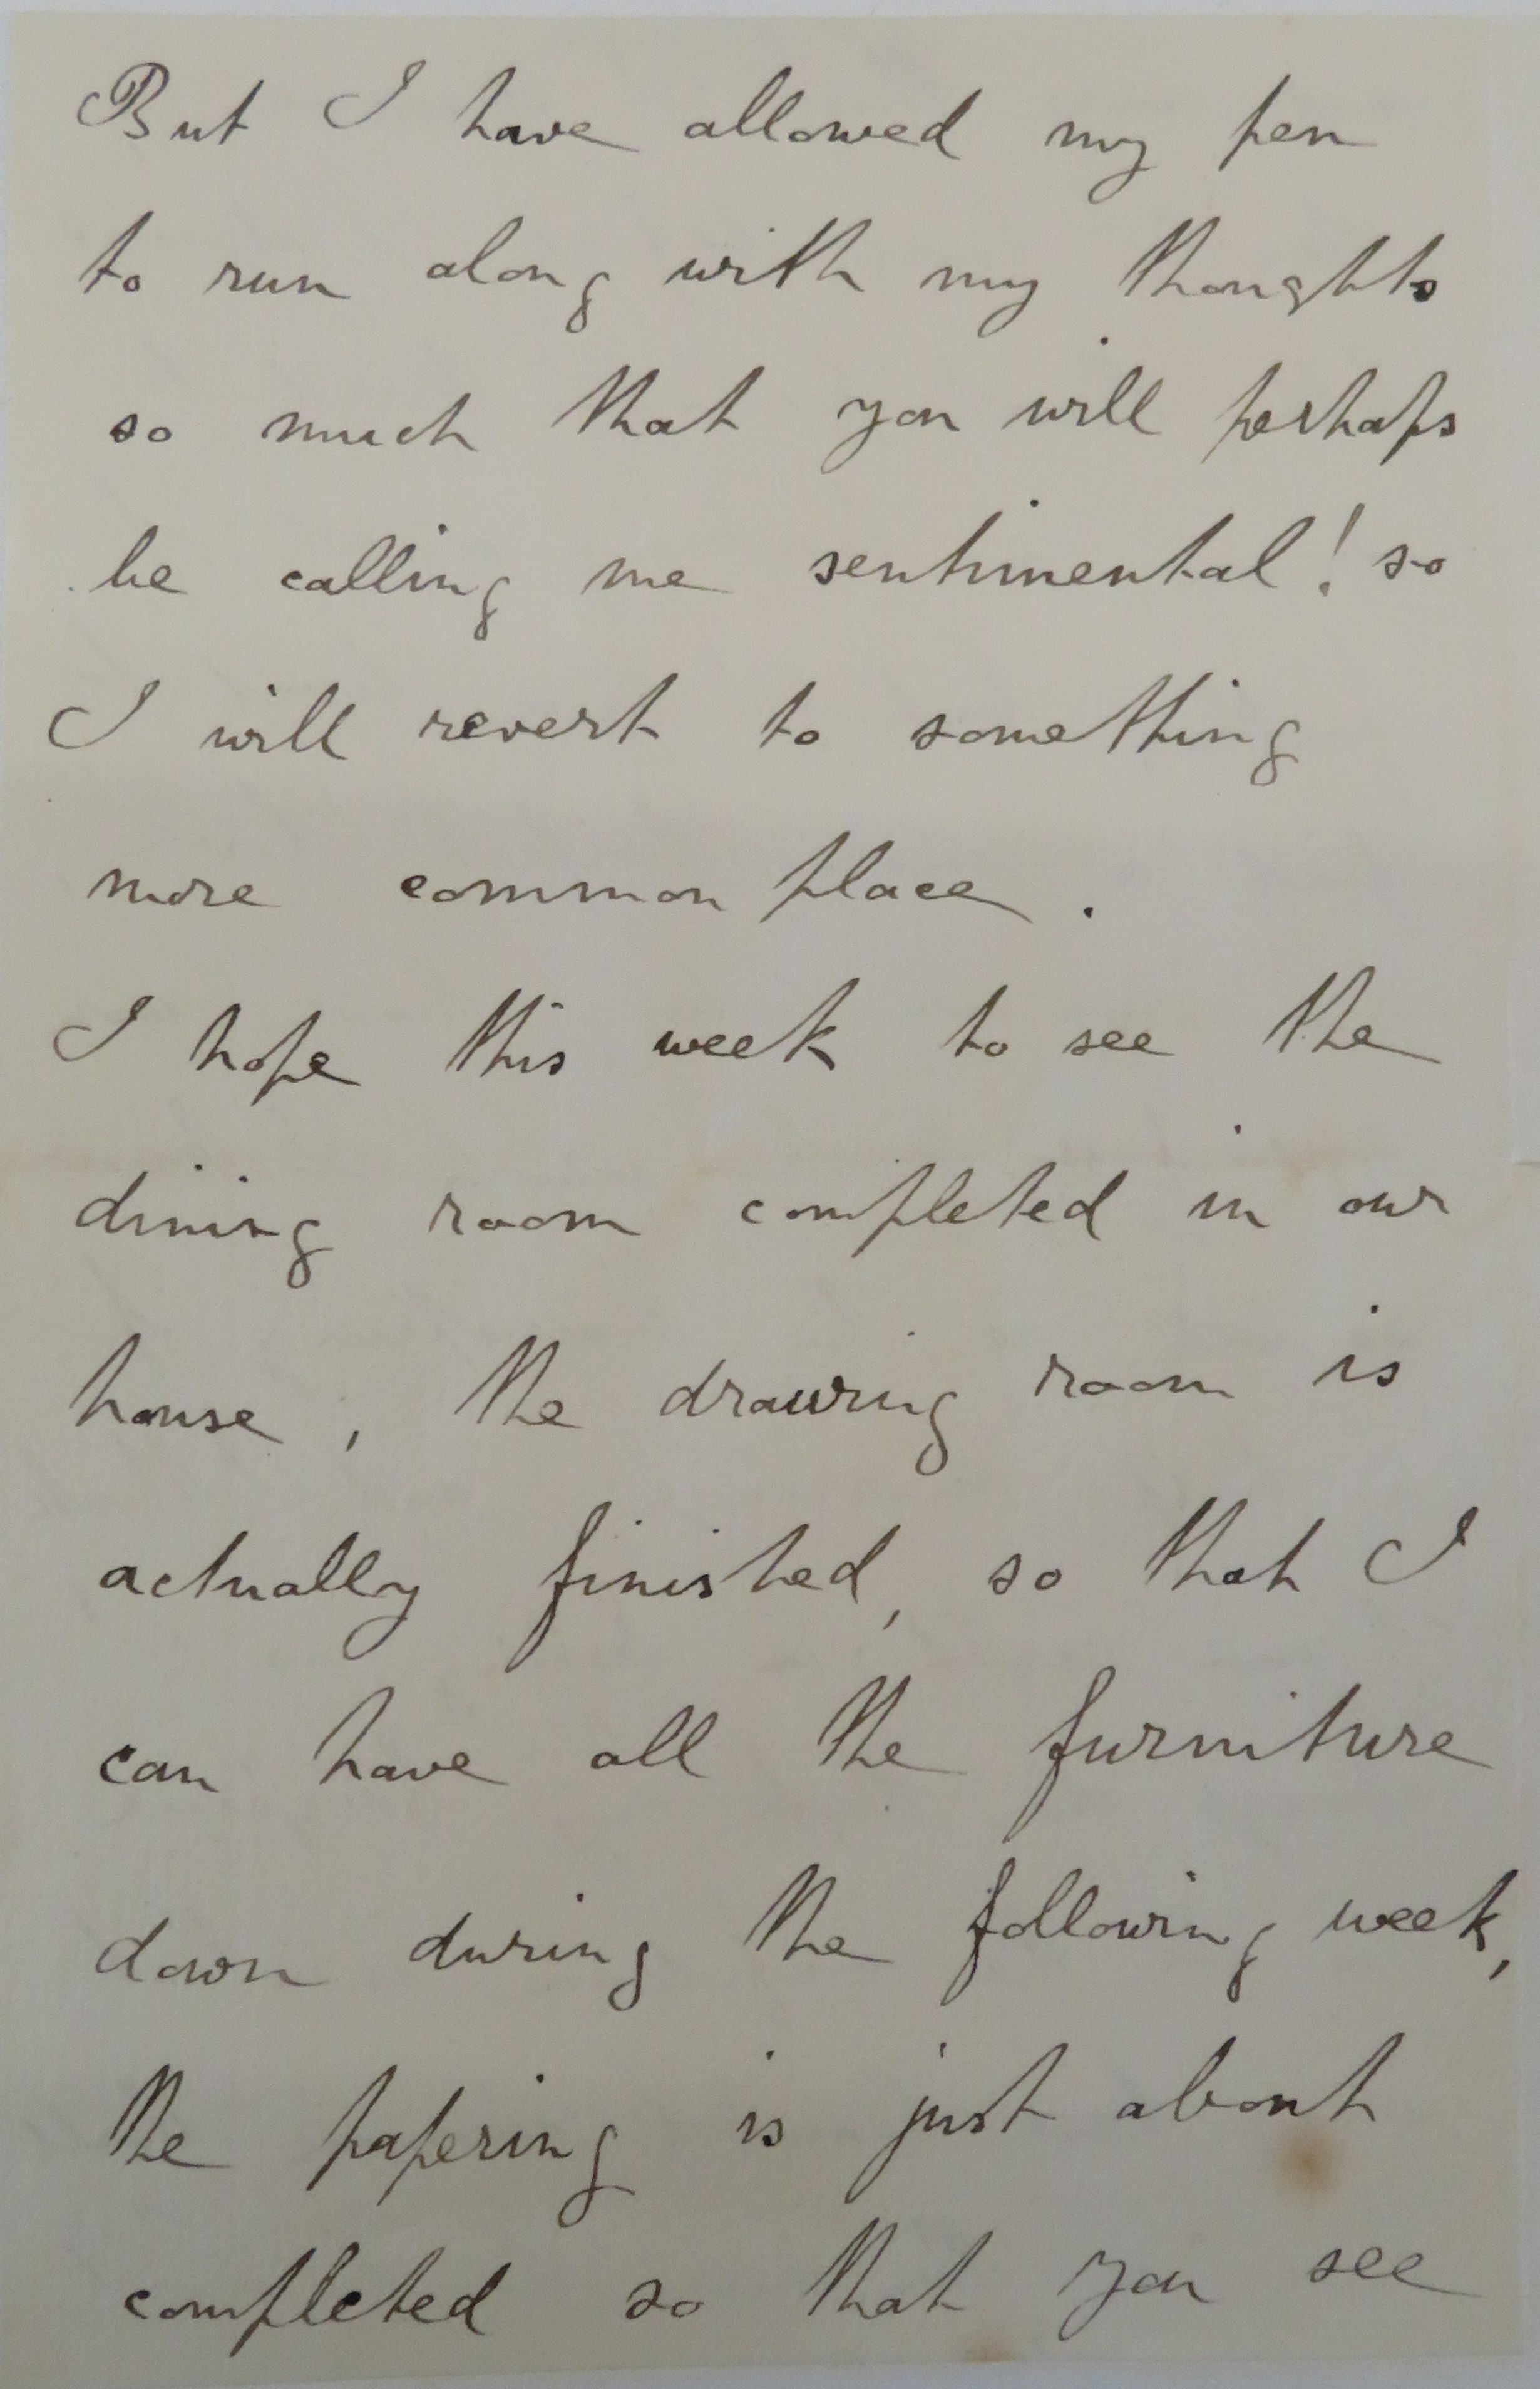 But I have allowed my pen
to run along with my thoughts
so much that you will perhaps
be calling me sentimental! so
I will revert to something
more common place.
I hope this week to see the
dining room completed in our
house, the drawing room is
actually finished, so that I
can have all the furniture
down during the following week,
the papering is just about
completed so that you see